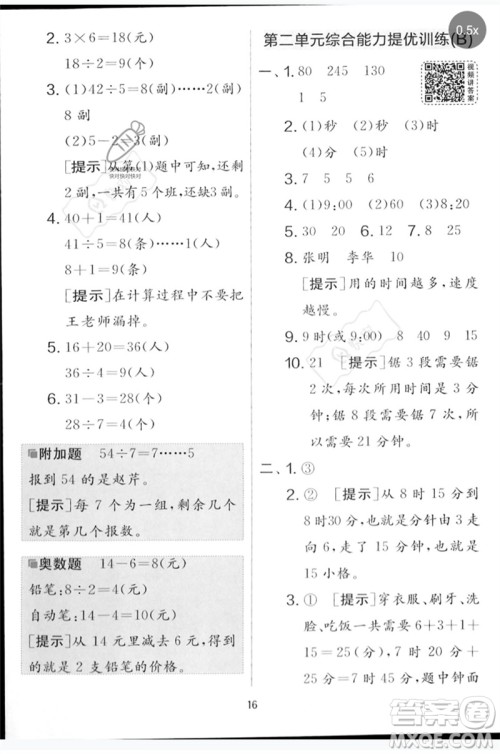 2. 3×6=18(元)
18÷2=9(元)
3. (1)42÷5=8(副)……2(副)
8 副
(2)5-2=3(副)
[提示]从第(1)题中可知，还剩
2副，一共有5个班，还缺3副。
4. 40+1=41(人)
41÷5=8(条)……1(人)
8+1=9(条)
[提示]在计算过程中不能把
王老师漏掉。
5. 16+20=36(人)
36÷6=6(条)
31-3=28(个)
28÷7=4(个)
附加题 54÷7=7……5
报到 54 的是赵芹。
[提示]每 7 个为一组，剩余几个
就是第几个报数。
奥数题 14-6=8(元)
铅笔：8÷2=4(元)
自动笔：14-4=10(元)
[提示]从 14 元里减去 6 元，得到
的就是 2 支铅笔的价格。
0.5x
第二单元综合能力提优训练(B)
一、1. 80 245 130
1 5
视频讲答案
2. (1)秒 (2)秒 (3)时
(4)分 (5)时
3. 7 5 5 5
4. (1)9:00 (2)60 (3)8:20
5. 30 6. 12 7. 8 25
8. 张明 李华 10
[提示]用的时间越多，速度
越慢。
9. 9时(或9:00) 8 40 9 15
10. 21 [提示]锯 3 段需要锯
2 次，每次所用时间是 3 分
钟；锯 8 段需要锯 7 次，所
以需要 21 分钟。
二、1. ③
2. ① [提示]从 8 时 15 分到
8 时 30 分，也就是分针由 3
走到 6，所以分针走了
15 小格。
3. ① [提示]穿衣服、刷牙、洗
脸、吃饭一共需要 6+3+1+
15=25(分)，题中钟面
16